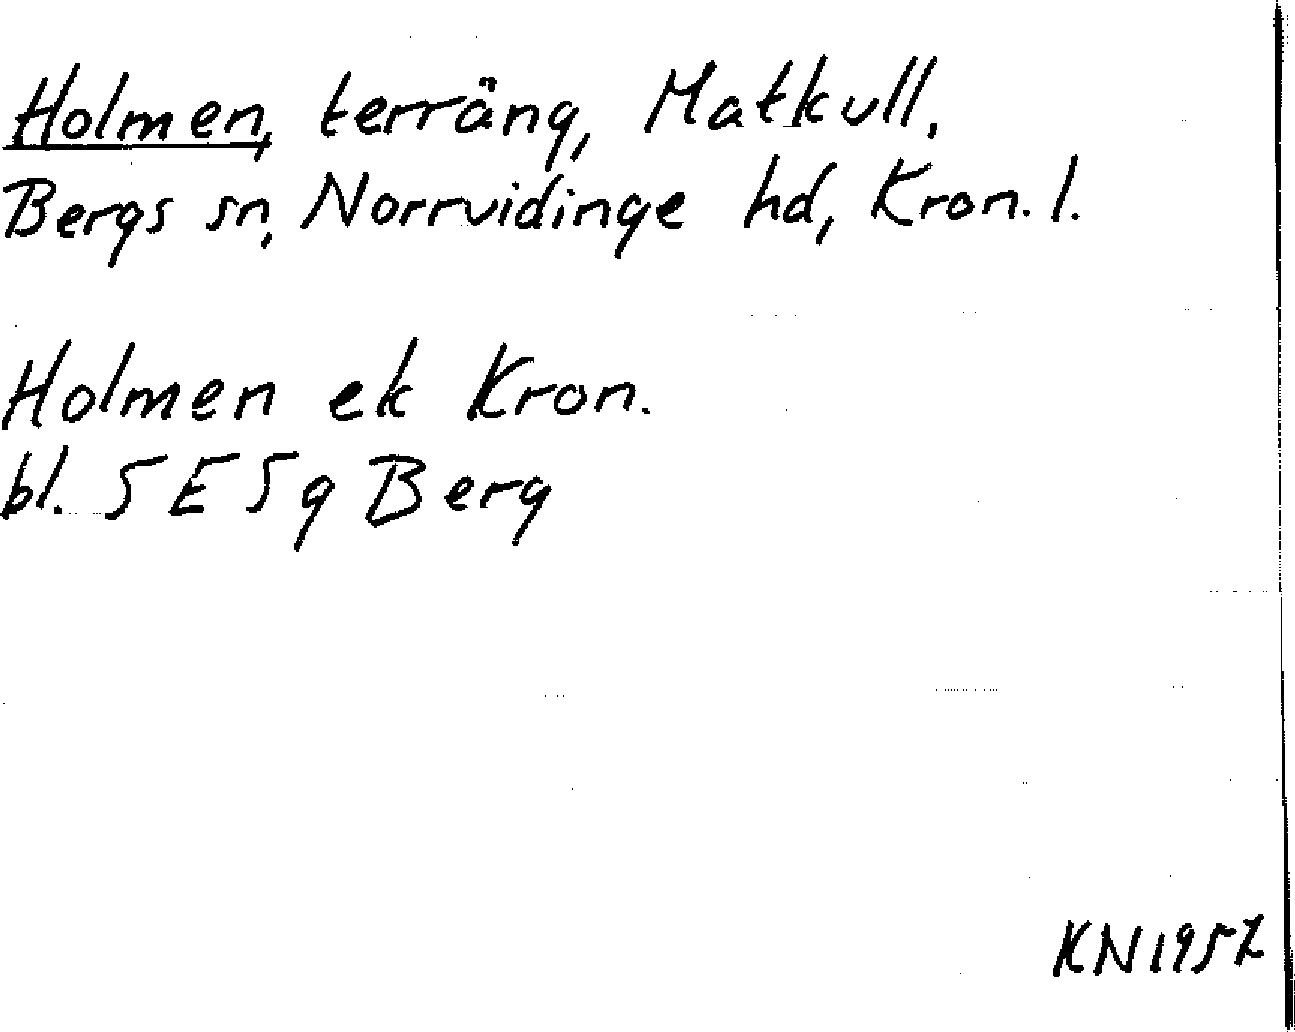 Holmen, terräng, Matkull,
Bergs sn, Norrvidinge hd, Kron. l.
Holmen ek Kron.
bl. 5 E 5 g Berg
KN 1952